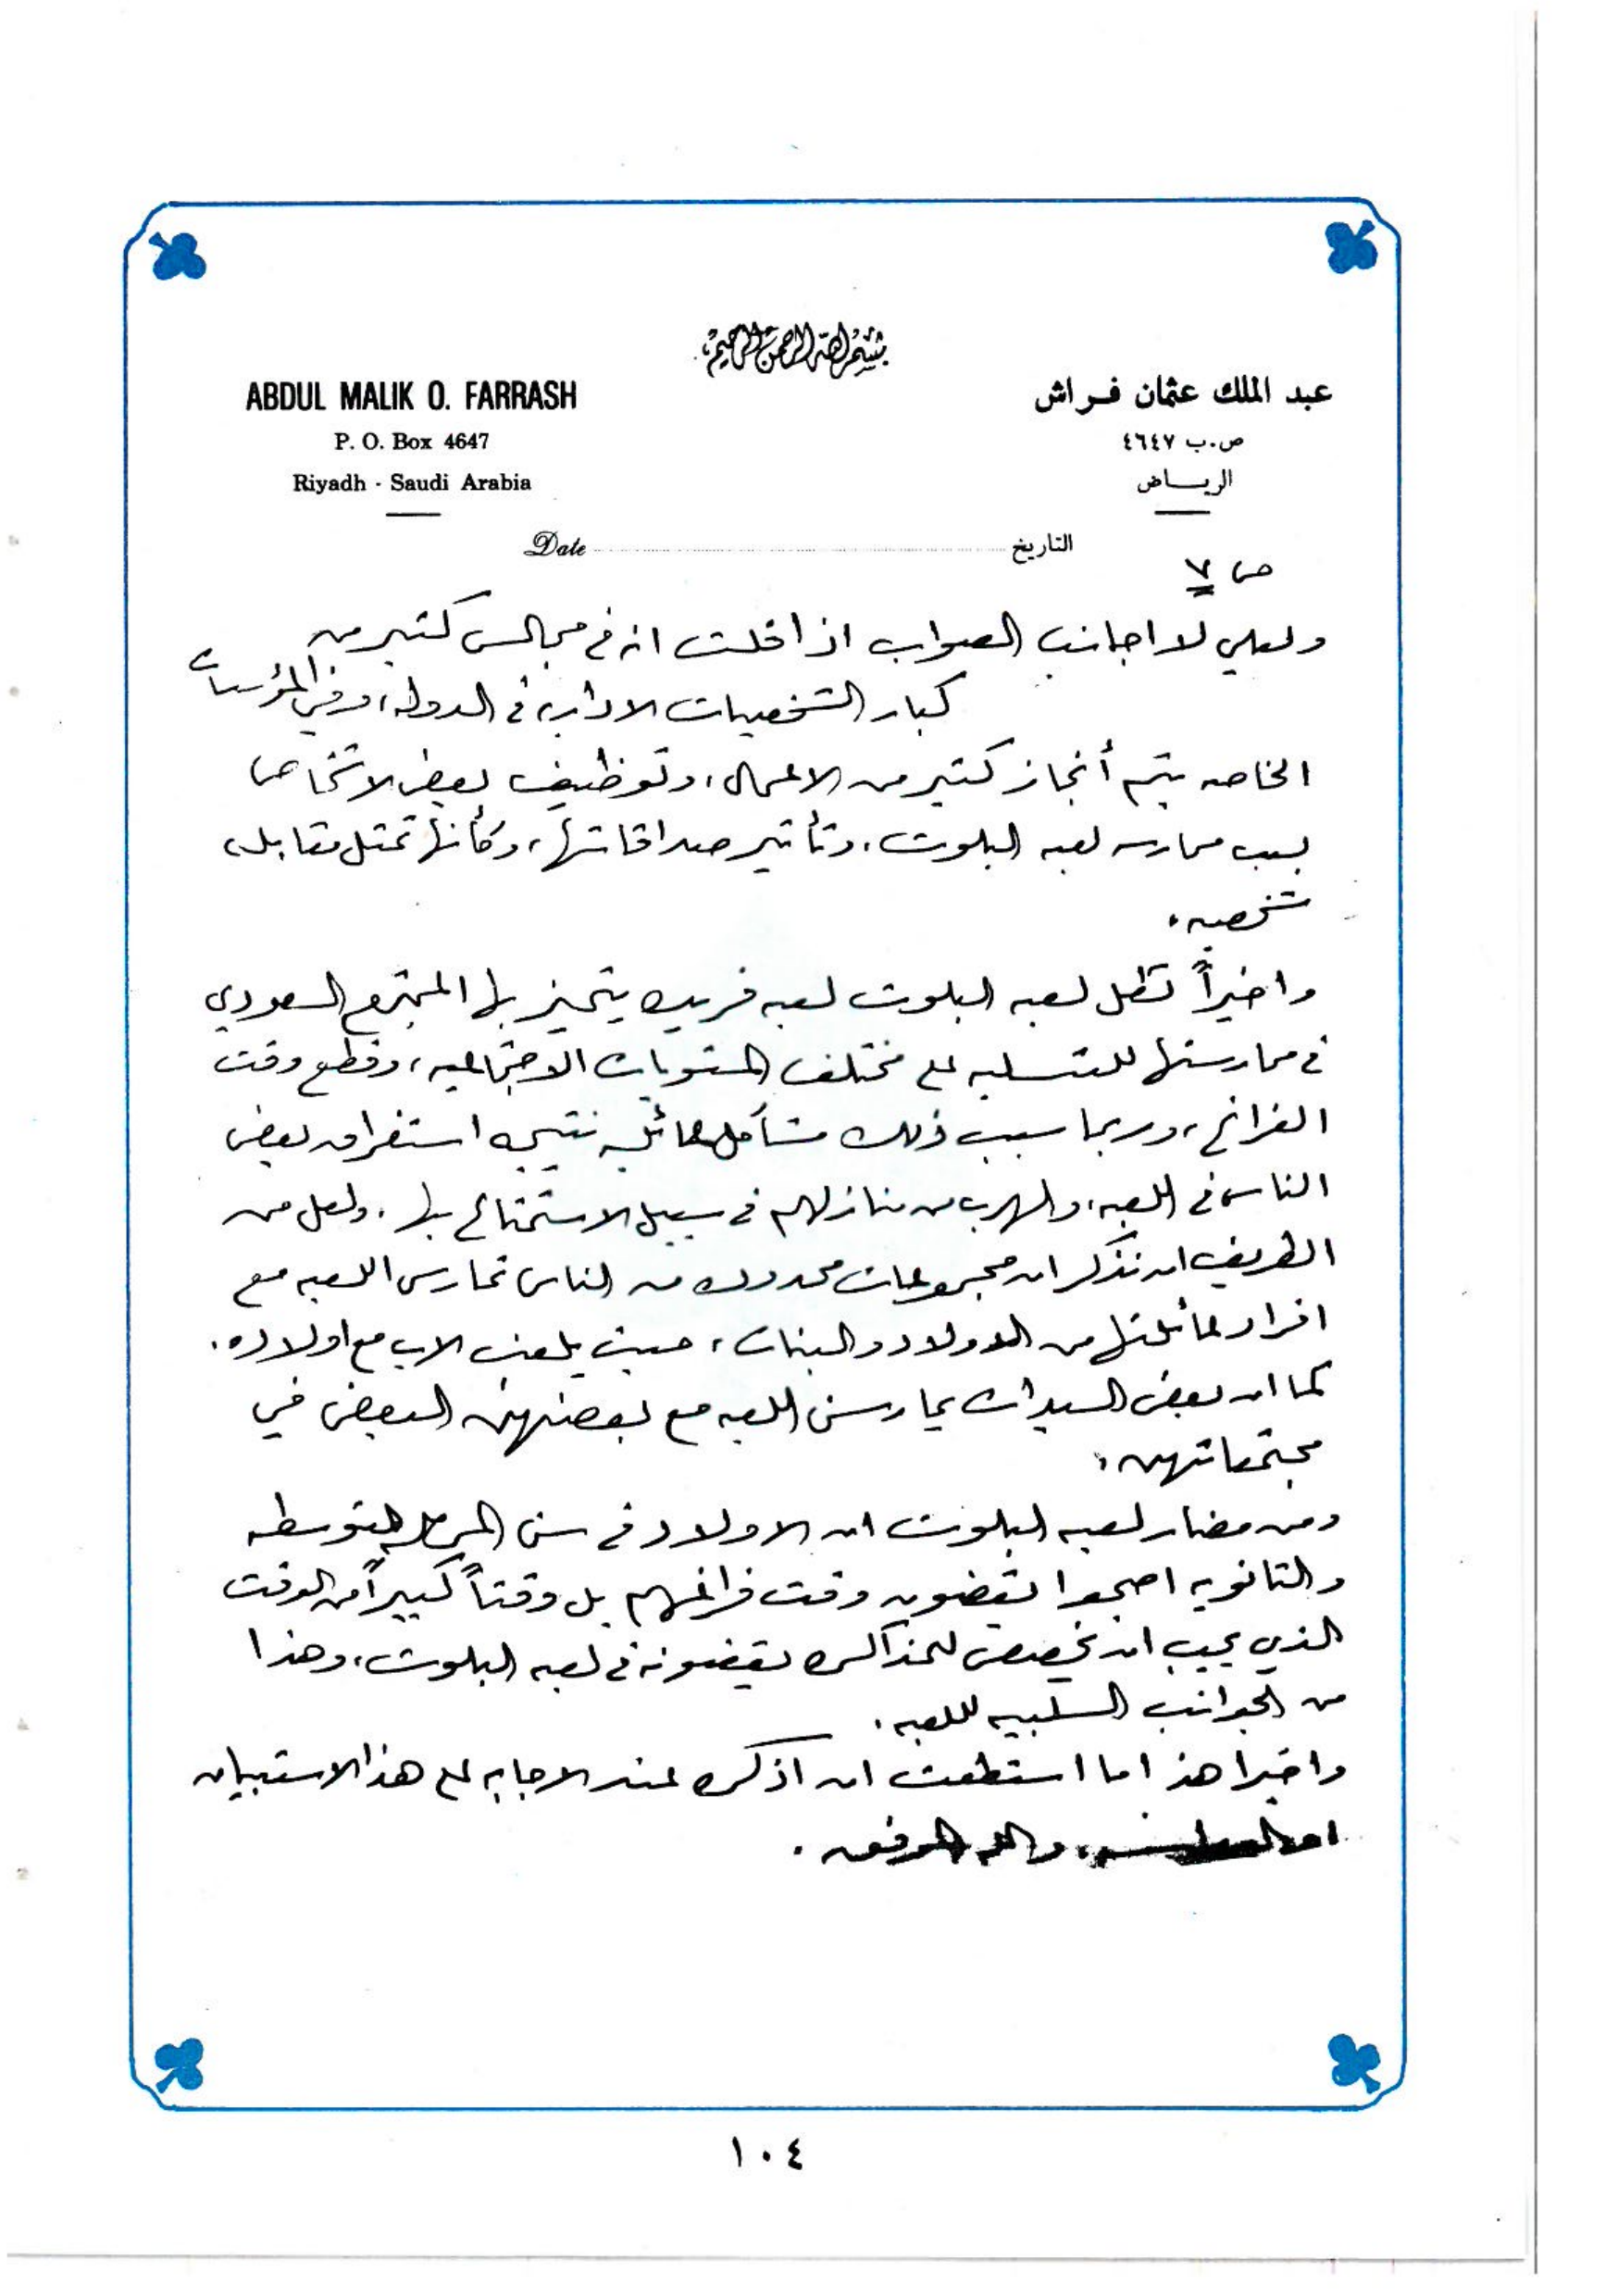 بسم الله الرحمن الرحيم
ABDUL MALIK O. FARRASH
عبد الملك عثمان فراش
P. O. Box 4647
ص.ب ٤٦٤٧
Riyadh - Saudi Arabia
الرياض
Date التاريخ
ص ٧
ولعلي لا اجانب الصواب اذا قلت انه في مجالس كثير من
كبار الشخصيات الاداريه في الدوله، وفي المؤسسات
الخاصه يتم أنجاز كثير من الاعمال، وتوظيف بعض الاشخاص
بسبب ممارسه لعبه البلوت، وتأثير صداقاتها، وكأنها تمثل مقابله
شخصيه.
واخيراً تظل لعبه البلوت لعبه فريده يتميز بها المجتمع السعودي
في ممارستها للتسليه على مختلف المستويات الاجتماعيه، وقطع وقت
الفراغ، وربما سبب ذلك مشاكل عائليه نتيجه استغراق بعض
الناس في اللعبه، والهرب من منازلهم في سبيل الاستمتاع بها. ولعل من
الطريف ان نذكر ان مجموعات محدوده من الناس تمارس اللعبه مع
افراد عائلتها من الاولاد والبنات، حيث يلعب الاب مع اولاده.
كما ان بعض السيدات يمارسن اللعبه مع بعضهن البعض في
مجتمعاتهن.
ومن مضار لعبه البلوت ان الاولاد في سن المرحله المتوسطه
والثانويه اصبحوا يقضون وقت فراغهم بل وقتاً كبيراً من الوقت
الذي يجب ان يخصص للمذاكره يقضونه في لعبه البلوت، وهذا
من الجوانب السلبيه للعبه.
واخيرا هذا ما استطعت ان اذكره عند الاجابه على هذا الاستبيان
والله الموفق.
١٠٤